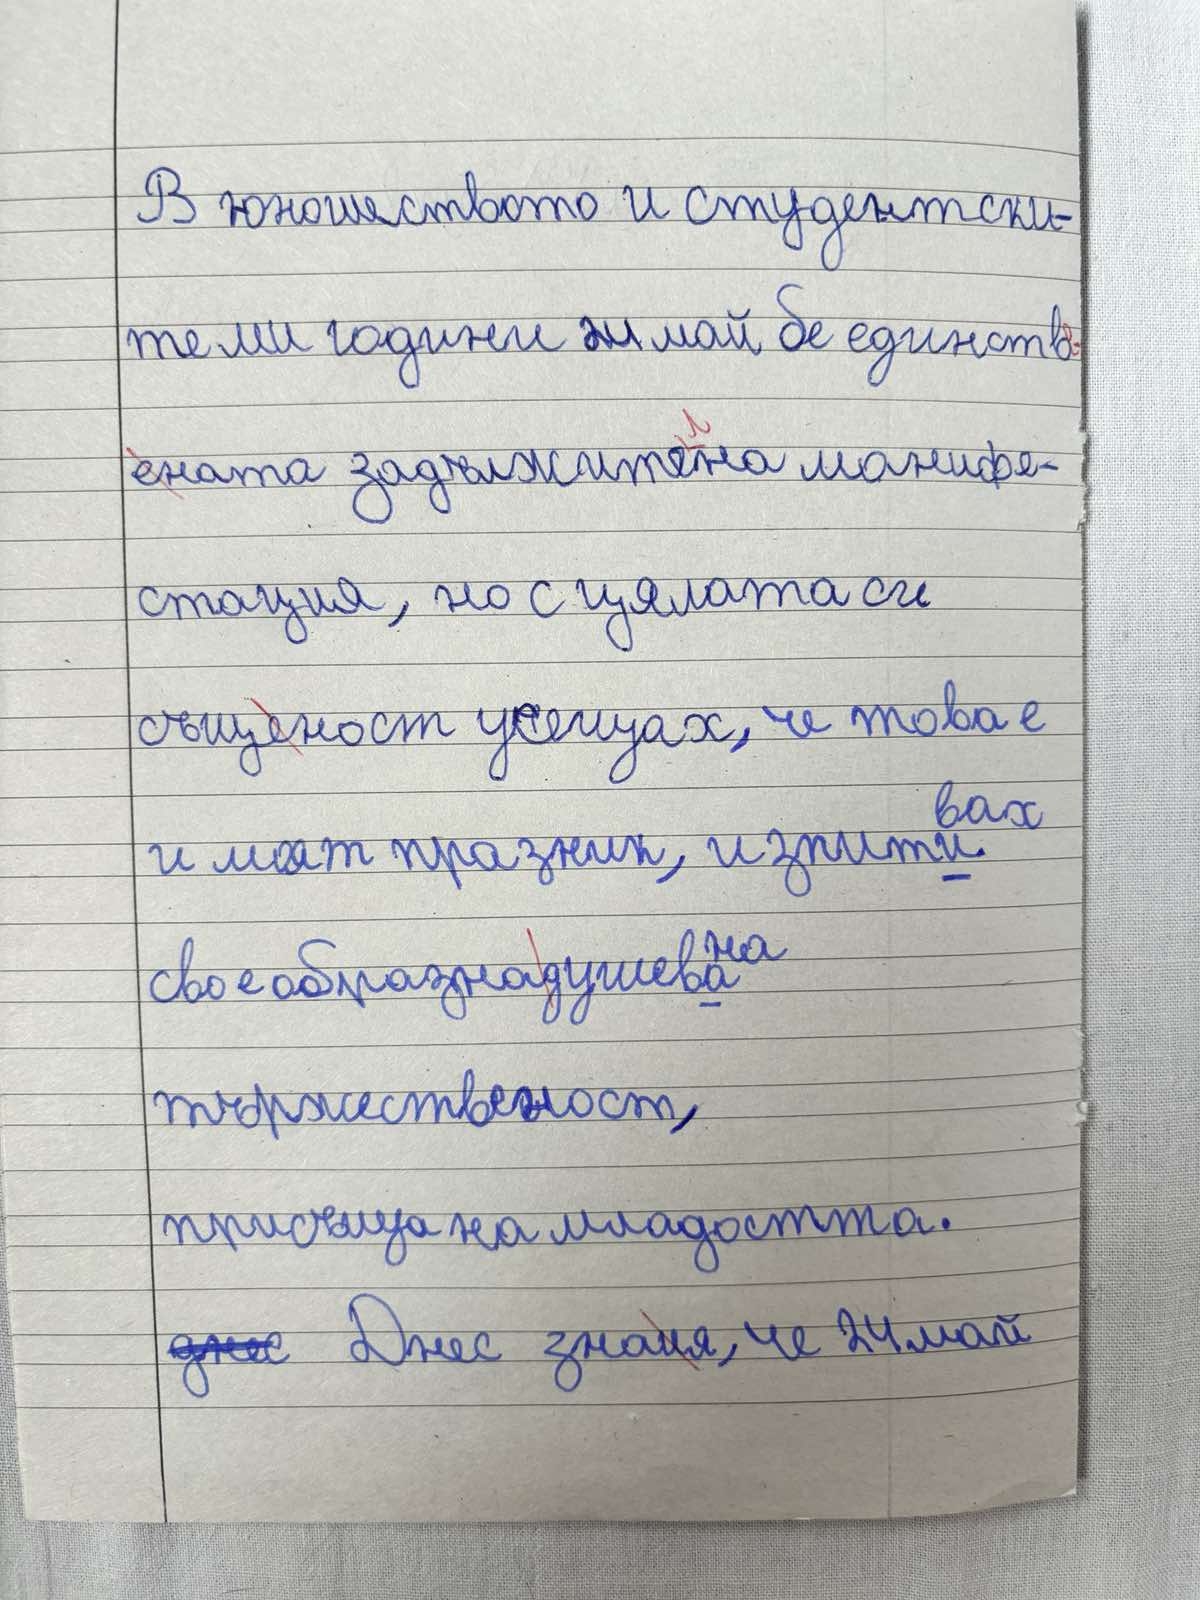 В юношеството и студентски-
те ми години 24 май бе единстве-
ената задължителна манифе-
стация, но с цялата си
същеност усещах, че това е
и моят празник, изпитивах
своеобразна душевана
тържественост,
присъща на младостта.
днес Днес зная, че 24 май